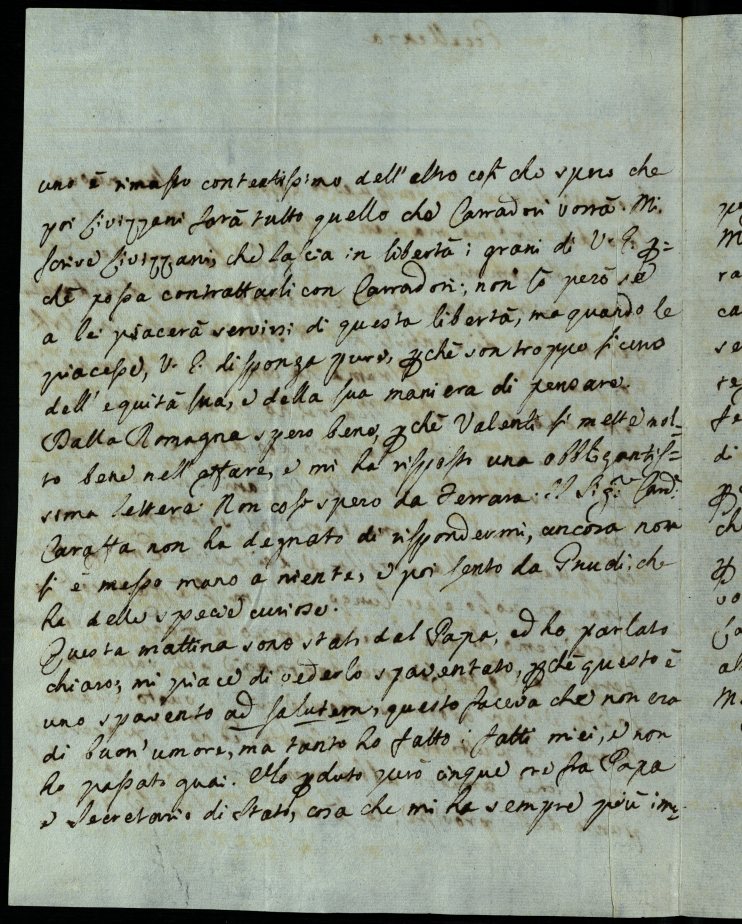 uno è rimasto contentissimo dell'altro così che spero che
poi Civizzani farà tutto quello che Carradori vorrà. Mi
scrive Civizzani, che lascia in libertà i grani di V. E. p=
chè possa contrattarli con Carradori; non so però se
a lei piacerà servirsi di questa libertà, ma quando le
piacesse, V. E. disponga pure, pchè son troppo sicuro
dell'equità sua, e della sua maniera di pensare.
Dalla Romagna spero bene, pchè Valenti si mette mol=
to bene nell'affare, e mi ha risposto una obbligantis=
sima lettera. Non così spero da Ferrara. Il Sig.r Card.
Caraffa non ha degnato di rispondermi, ancora non
si è messo mano a niente, e poi sento da Gnudi, che
ha delle specie curiose.
Questa mattina sono stato dal Papa, ed ho parlato
chiaro; mi piace di vederlo spaventato, pchè questo è
uno spavento ad salutem, questo faceva che non era
di buon'umore, ma tanto ho fatto i fatti miei, e non
ho passati guai. Ho pduto però cinque ore fra Papa
e Secretario di Stato, cosa che mi ha sempre più im=